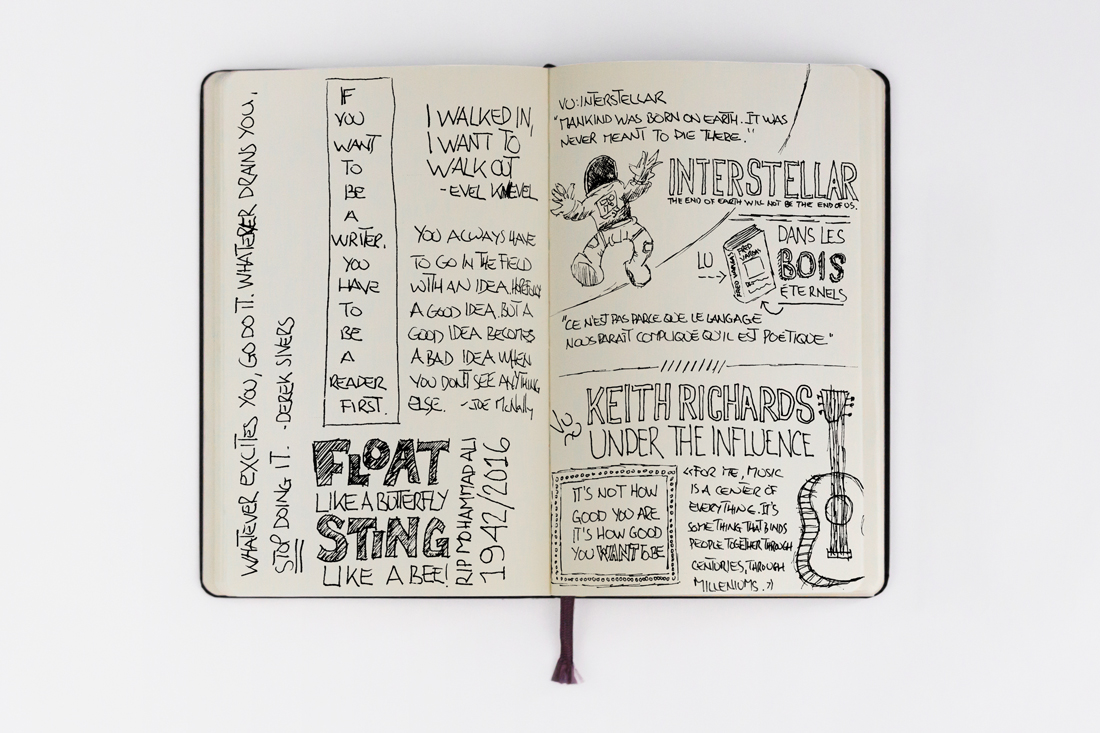 WHATEVER EXCITES YOU, GO DO IT. WHATEVER DRAINS YOU,
STOP DOING IT. - DEREK SIVERS
IF
YOU
WANT
TO
BE
A
WRITER,
YOU
HAVE
TO
BE
A
READER
FIRST.
I WALKED IN,
I WANT TO
WALK OUT
- EVEL KNIEVEL
YOU ALWAYS HAVE
TO GO IN THE FIELD
WITH AN IDEA, HOPEFULLY
A GOOD IDEA. BUT A
GOOD IDEA BECOMES
A BAD IDEA WHEN
YOU DON'T SEE ANYTHING
ELSE. - JOE McNAlly
FLOAT
LIKE A BUTTERFLY
STING
LIKE A BEE!
RIP MOHAMMAD ALI
1942/2016
VU: INTERSTELLAR
"MANKIND WAS BORN ON EARTH. IT WAS
NEVER MEANT TO DIE THERE."
INTERSTELLAR
THE END OF EARTH WILL NOT BE THE END OF US.
LU
FRED VARGAS
FRED
VARGAS
DANS LES
BOIS
ÉTERNELS
"CE N'EST PAS PARCE QUE LE LANGAGE
NOUS PARAÎT COMPLIQUÉ QU'IL EST POÉTIQUE."
VU
KEITH RICHARDS
UNDER THE INFLUENCE
IT'S NOT HOW
GOOD YOU ARE
IT'S HOW GOOD
YOU WANT TO BE
«FOR ME, MUSIC
IS A CENTER OF
EVERYTHING. IT'S
SOMETHING THAT BINDS
PEOPLE TOGETHER THROUGH
CENTURIES, THROUGH
MILLENIUMS.»